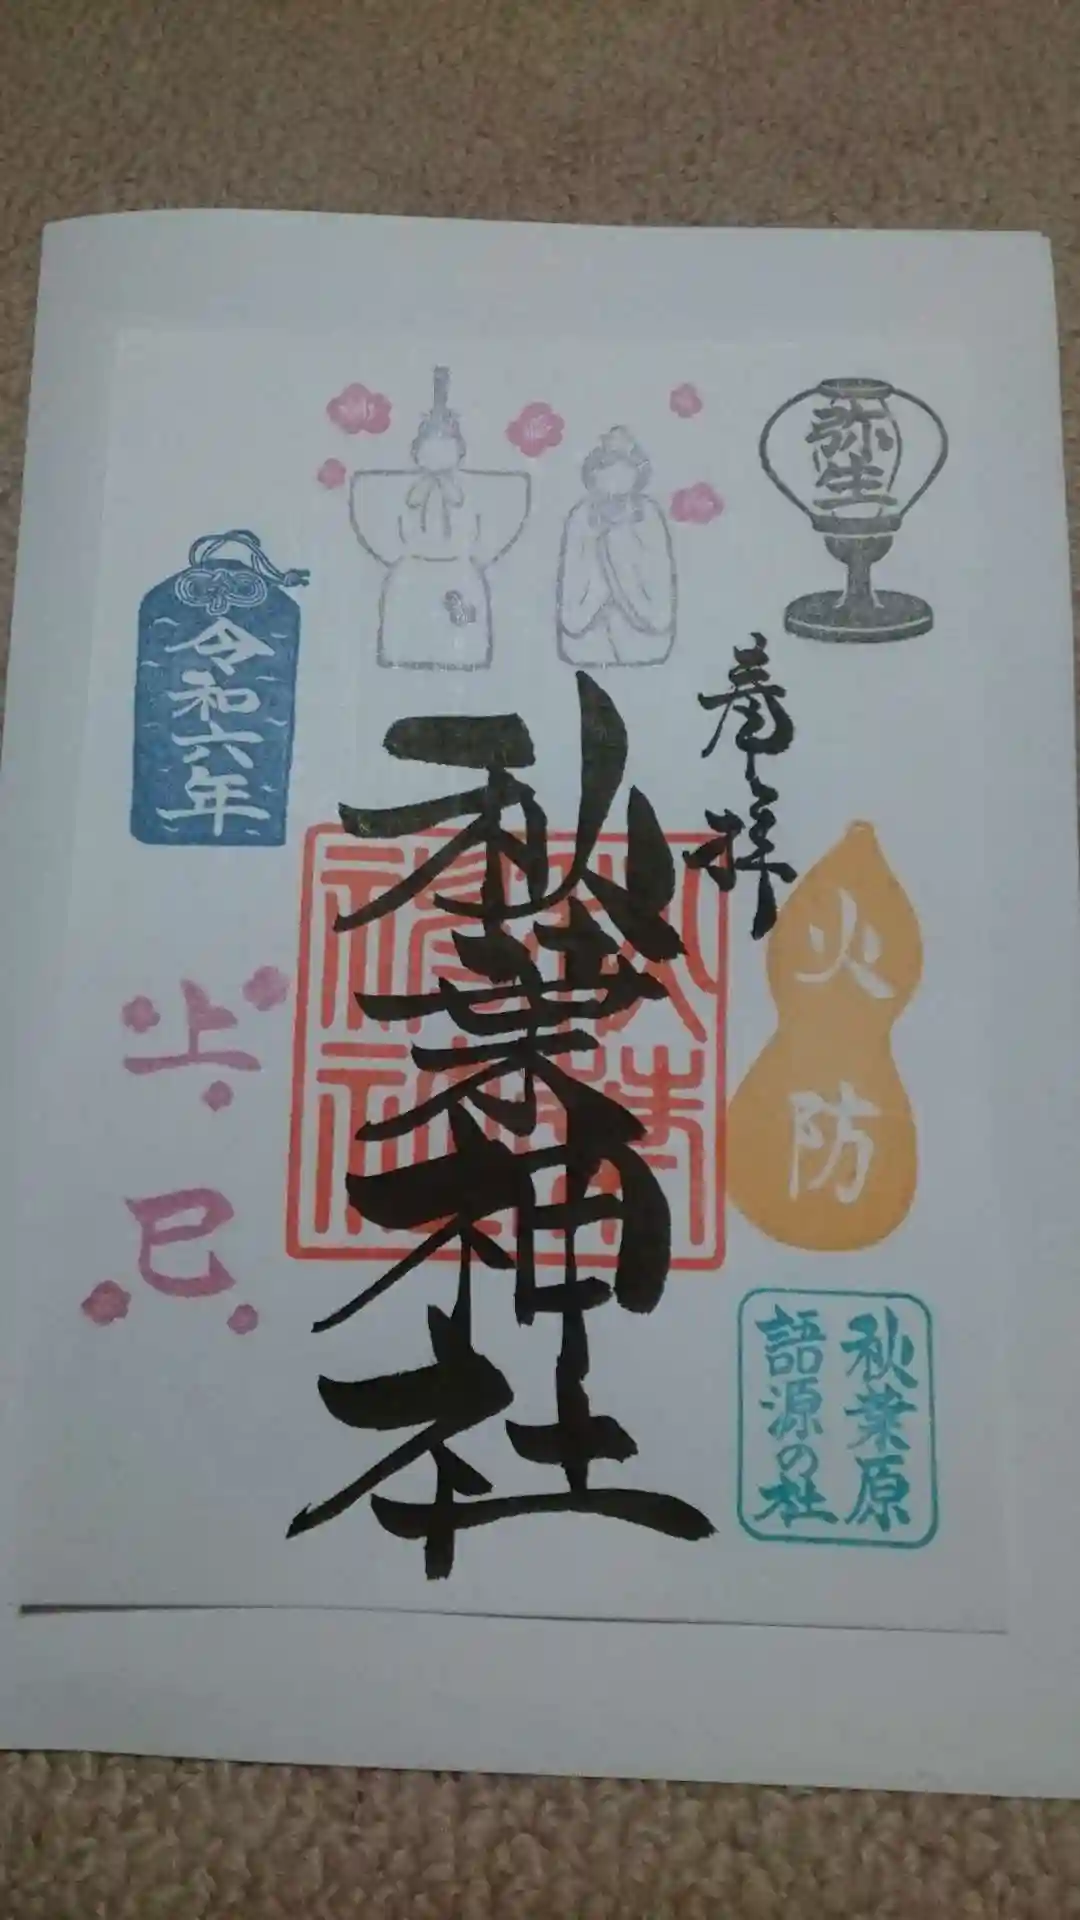 弥生
奉拝
火防
秋葉原
語源の杜
秋葉神社
秋葉
神社
令和六年
上巳